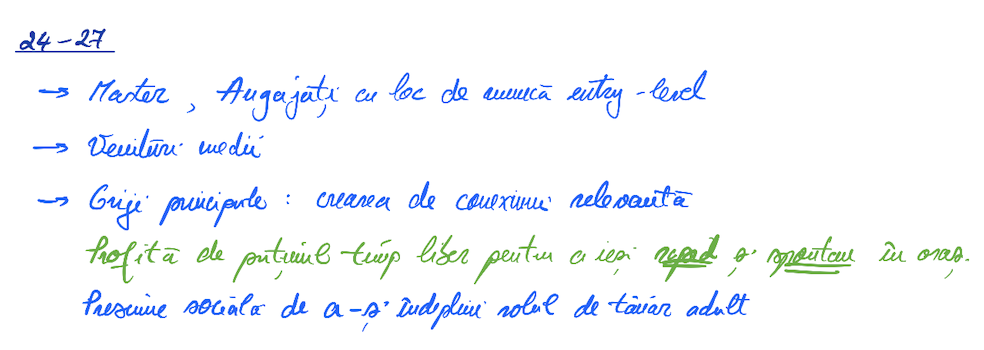 24-27
→ Master, Angajați cu loc de muncă entry-level
→ Venituri medii
→ Griji principale: crearea de conexiuni relevantă
Profită de puținul timp liber pentru a ieși rapid și spontan în oraș.
Presiune socială de a-și îndeplini rolul de tânăr adult